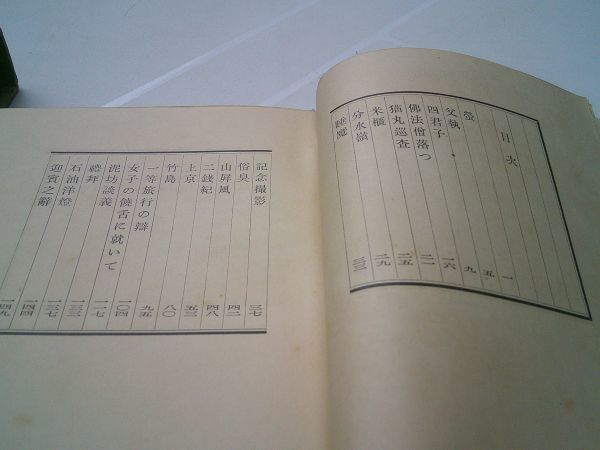 目次
螢 一
父執 五
四君子 九
佛法僧落つ 一六
猫丸巡査 二一
米櫃 二五
分水嶺 二九
睡魔 三三
記念撮影 三七
俗臭 四二
山屏風 四八
二錢紀 五三
上京 八〇
竹島 九五
一等旅行の辯 一〇四
女子の饒舌に就いて 一一七
泥坊談義 一三三
禮拜 一三七
石油洋燈 一四四
迎賓之辭 一四九